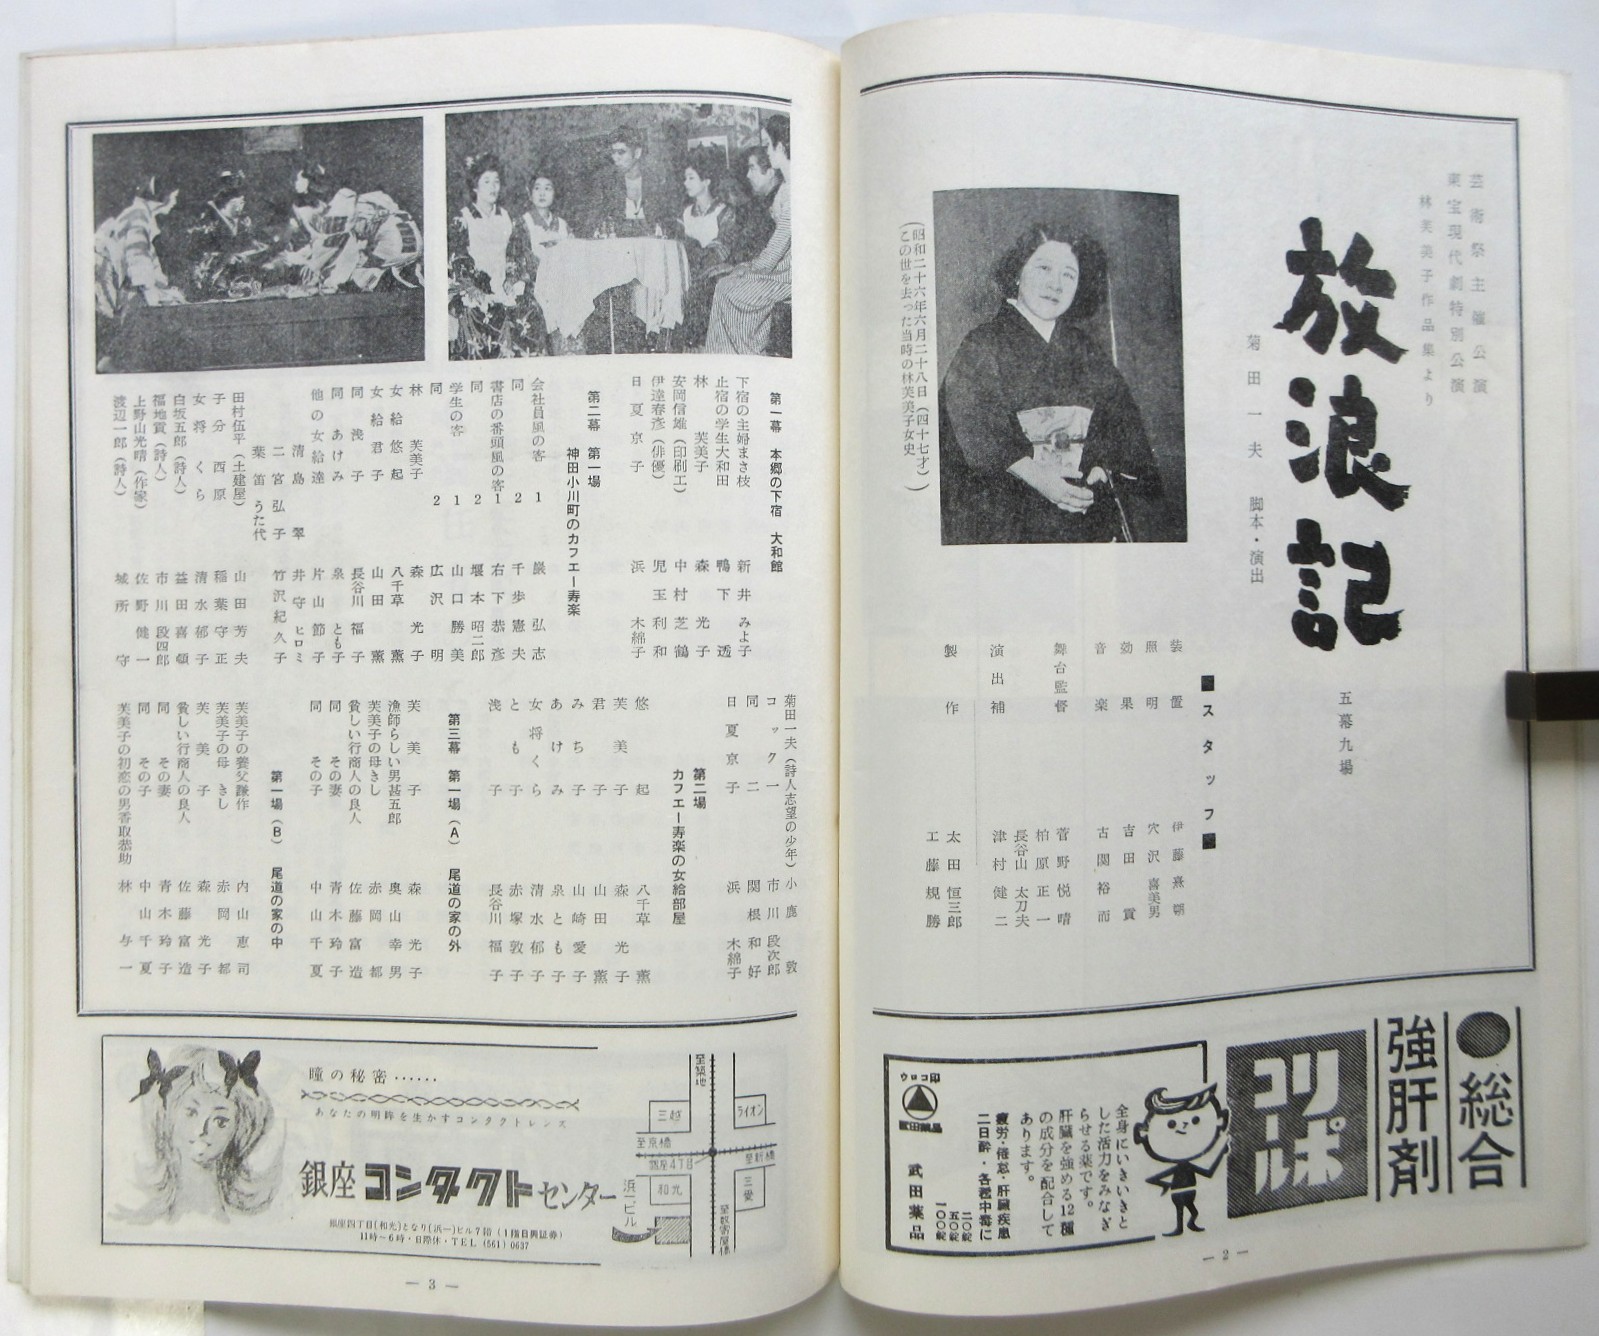 芸術祭主催公演
東宝現代劇特別公演
林芙美子作品集より
放浪記
五幕九場
菊田一夫 脚本・演出
(昭和二十六年六月二十八日(四十七才)
この世を去った当時の林芙美子女史)
■スタッフ■
装置 伊藤熹朔
照明 穴沢喜美男
効果 吉田貢
音楽 古関裕而
舞台監督 菅野悦晴
柏原正一
長谷山太刀夫
演出補 津村健二
製作 太田恒三郎
工藤規勝
●総合
強肝剤
コリホルポ
全身にいきいきと
した活力をみなぎ
らせる薬です。
肝臓を強める12種
の成分を配合して
あります。
疲労・倦怠・肝臓疾患
二日酔・各種中毒に
二〇錠
五〇錠
一〇〇錠
武田薬品
ウロコ印
武田薬品
— 2 —
第一幕 本郷の下宿 大和館
下宿の主婦まさ枝 新井みよ子
止宿の学生大和田 鴨下透
林芙美子 森光子
安岡信雄(印刷工) 中村芝鶴
伊達春彦(俳優) 児玉利和
日夏京子 浜木綿子
第二幕 第一場
神田小川町のカフエー寿楽
会社員風の客 1 巌弘志
同 2 千歩憲夫
書店の番頭風の客 1 右下恭彦
同 2 堰本昭二郎
学生の客 1 山口勝美
同 2 広沢明
林芙美子 森光子
女給悠起 八千草薫
女給君子 山田薫
同浅子 長谷川福子
同あけみ 泉とも子
他の女給達 片山節子
清島翠 井守ヒロミ
二宮弘子 竹沢紀久子
葉笛うた代
田村伍平(土建屋) 山田芳夫
子分西原 稲葉守正
女将くら 清水郁子
白坂五郎(詩人) 益田喜頓
福地貢(詩人) 市川段四郎
上野山光晴(作家) 佐野健一
渡辺一郎(詩人) 城所守
菊田一夫(詩人志望の少年) 小鹿敦
コック一 市川段次郎
同二 関根和好
日夏京子 浜木綿子
第二場
カフエー寿楽の女給部屋
悠起 八千草薫
芙美子 森光子
君子 山田薫
みち子 山崎愛子
あけみ 泉とも子
女将くら 清水郁子
とも子 赤塚敦子
浅子 長谷川福子
第三幕 第一場(A) 尾道の家の外
芙美子 森光子
漁師らしい男甚五郎 奥山幸男
芙美子の母きし 赤岡都
貧しい行商人の良人 佐藤富造
同 その妻 青木玲子
同 その子 中山千夏
第一場(B) 尾道の家の中
芙美子の養父謙作 内山恵司
芙美子の母きし 赤岡都
芙美子 森光子
貧しい行商人の良人 佐藤富造
同 その妻 青木玲子
同 その子 中山千夏
芙美子の初恋の男香取恭助 林与一
瞳の秘密……
あなたの明眸を生かすコンタクトレンズ
銀座コンタクトセンター
銀座四丁目(和光)となり(浜一)ビル7階(1階日興証券)
11時〜6時・日際休・TEL (561) 0637
至築地
三越
ライオン
至京橋
至新橋
銀座4丁目
和光
三愛
浜一ビル
至数寄屋橋
— 3 —